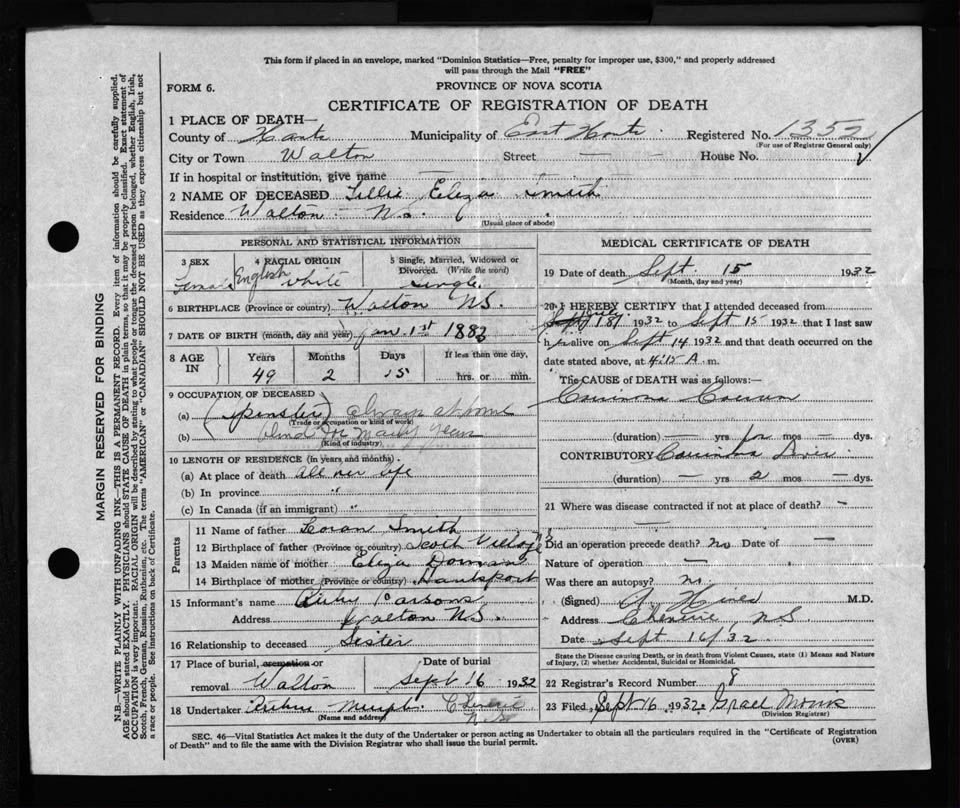 This form if placed in an envelope, marked "Dominion Statistics—Free, penalty for improper use, $300," and properly addressed
will pass through the Mail "FREE"
FORM 6.
PROVINCE OF NOVA SCOTIA
CERTIFICATE OF REGISTRATION OF DEATH
1 PLACE OF DEATH—
County of Hants Municipality of East Hants Registered No. 1352
(For use of Registrar General only)
City or Town Walton Street — — House No.
If in hospital or institution, give name —
2 NAME OF DECEASED Lillie Eliza Smith
Residence Walton N.S.
(Usual place of abode)
PERSONAL AND STATISTICAL INFORMATION
3 SEX
Female
4 RACIAL ORIGIN
English white
5 Single, Married, Widowed or
Divorced. (Write the word)
Single
6 BIRTHPLACE (Province or country) Walton N.S.
7 DATE OF BIRTH (month, day and year) Jan. 1st 1883
8 AGE IN
Years Months Days If less than one day,
49 2 15 hrs. or min.
9 OCCUPATION OF DECEASED
(a) (Spinster) always at home
(Trade or occupation or kind of work)
(b) blind for many years
(Kind of industry)
10 LENGTH OF RESIDENCE (in years and months)
(a) At place of death all her life
(b) In province "
(c) In Canada (if an immigrant) "
Parents
11 Name of father Smith
12 Birthplace of father (Province or country) Scotch Village
13 Maiden name of mother Eliza
14 Birthplace of mother (Province or country) Hantsport
15 Informant's name Parsons
Address Walton N.S.
16 Relationship to deceased Sister
17 Place of burial, cremation or
removal Walton
Date of burial
Sept 16 1932
18 Undertaker Cheverie
N.S.
(Name and address)
MEDICAL CERTIFICATE OF DEATH
19 Date of death Sept. 15 1932
(Month, day and year)
20 I HEREBY CERTIFY that I attended deceased from
1932 to Sept 15 1932 that I last saw
h alive on Sept 14 1932 and that death occurred on the
date stated above, at 4:15 A. m.
The CAUSE of DEATH was as follows:—
(duration) — yrs mos — dys.
CONTRIBUTORY
(duration) — yrs 2 mos — dys.
21 Where was disease contracted if not at place of death? —
Did an operation precede death? No Date of —
Nature of operation —
Was there an autopsy? No.
(Signed) M.D.
Address Cheverie N.S
Date Sept 16/32
State the Disease causing Death, or in death from Violent Causes, state (1) Means and Nature
of Injury, (2) whether Accidental, Suicidal or Homicidal.
22 Registrar's Record Number 8
23 Filed Sept 16 1932 Morris
(Division Registrar)
SEC. 46—Vital Statistics Act makes it the duty of the Undertaker or person acting as Undertaker to obtain all the particulars required in the "Certificate of Registration
of Death" and to file the same with the Division Registrar who shall issue the burial permit.
(OVER)
MARGIN RESERVED FOR BINDING
N.B.—WRITE PLAINLY WITH UNFADING INK—THIS IS A PERMANENT RECORD. Every item of information should be carefully supplied.
AGE should be stated EXACTLY. PHYSICIANS should STATE CAUSE OF DEATH in plain terms, so that it may be properly classified. Exact statement of
OCCUPATION is very important. RACIAL ORIGIN will be described by stating to what people or tongue the deceased person belonged, whether English, Irish,
Scotch, French, German, Russian, Ruthenian, etc. The terms "AMERICAN" or "CANADIAN" SHOULD NOT BE USED as they express citizenship but not
a race or people. See instructions on back of Certificate.